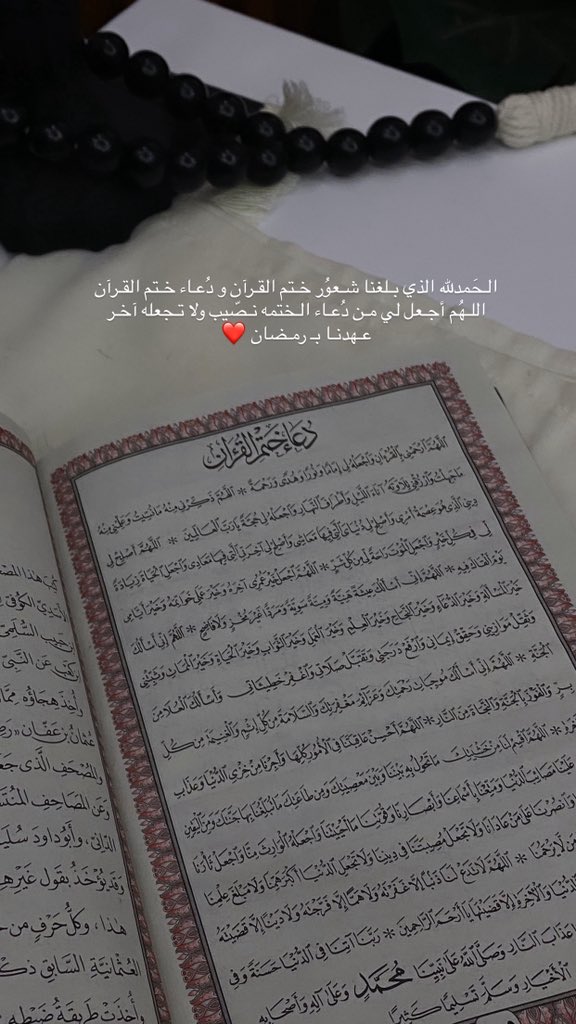 الحَمدلله الذي بلغنا شعوُر ختم القرآن و دُعاء ختم القرآن
اللهُم أجعل لي من دُعاء الختمه نصّيب ولا تجعله آخر
عهدنا بـ رمضان ❤️
دُعَاءُ خَتْمِ الْقُرْآنِ
اللَّهُمَّ ارْحَمْنِي بِالْقُرْآنِ وَاجْعَلْهُ لِي إِمَامًا وَنُورًا وَهُدًى وَرَحْمَةً * اللَّهُمَّ ذَكِّرْنِي مِنْهُ مَا نَسِيتُ وَعَلِّمْنِي مِنْهُ
مَا جَهِلْتُ وَارْزُقْنِي تِلَاوَتَهُ آنَاءَ اللَّيْلِ وَأَطْرَافَ النَّهَارِ وَاجْعَلْهُ لِي حُجَّةً يَا رَبَّ الْعَالَمِينَ * اللَّهُمَّ أَصْلِحْ لِي
دِينِي الَّذِي هُوَ عِصْمَةُ أَمْرِي وَأَصْلِحْ لِي دُنْيَايَ الَّتِي فِيهَا مَعَاشِي وَأَصْلِحْ لِي آخِرَتِي الَّتِي فِيهَا مَعَادِي وَاجْعَلِ الْحَيَاةَ زِيَادَةً
لِي فِي كُلِّ خَيْرٍ وَاجْعَلِ الْمَوْتَ رَاحَةً لِي مِنْ كُلِّ شَرٍّ * اللَّهُمَّ اجْعَلْ خَيْرَ عُمْرِي آخِرَهُ وَخَيْرَ عَمَلِي خَوَاتِمَهُ وَخَيْرَ أَيَّامِي
يَوْمَ أَلْقَاكَ فِيهِ * اللَّهُمَّ إِنِّي أَسْأَلُكَ عِيشَةً هَنِيَّةً وَمِيتَةً سَوِيَّةً وَمَرَدًّا غَيْرَ مُخْزٍ وَلَا فَاضِحٍ * اللَّهُمَّ إِنِّي أَسْأَلُكَ
خَيْرَ الْمَسْأَلَةِ وَخَيْرَ الدُّعَاءِ وَخَيْرَ النَّجَاحِ وَخَيْرَ الْعِلْمِ وَخَيْرَ الْعَمَلِ وَخَيْرَ الثَّوَابِ وَخَيْرَ الْحَيَاةِ وَخَيْرَ الْمَمَاتِ وَثَبِّتْنِي
وَثَقِّلْ مَوَازِينِي وَحَقِّقْ إِيمَانِي وَارْفَعْ دَرَجَتِي وَتَقَبَّلْ صَلَاتِي وَاغْفِرْ خَطِيئَاتِي وَأَسْأَلُكَ الْعُلَا مِنَ
الْجَنَّةِ * اللَّهُمَّ إِنِّي أَسْأَلُكَ مُوجِبَاتِ رَحْمَتِكَ وَعَزَائِمَ مَغْفِرَتِكَ وَالسَّلَامَةَ مِنْ كُلِّ إِثْمٍ وَالْغَنِيمَةَ مِنْ كُلِّ
بِرٍّ وَالْفَوْزَ بِالْجَنَّةِ وَالنَّجَاةَ مِنَ النَّارِ * اللَّهُمَّ أَحْسِنْ عَاقِبَتَنَا فِي الْأُمُورِ كُلِّهَا وَأَجِرْنَا مِنْ خِزْيِ الدُّنْيَا وَعَذَابِ
اللَّهُمَّ اقْسِمْ لَنَا مِنْ خَشْيَتِكَ مَا تَحُولُ بِهِ بَيْنَنَا وَبَيْنَ مَعْصِيَتِكَ وَمِنْ طَاعَتِكَ مَا تُبَلِّغُنَا بِهَا جَنَّتَكَ وَمِنَ الْيَقِينِ
عَلَيْنَا مَصَائِبَ الدُّنْيَا وَمَتِّعْنَا بِأَسْمَاعِنَا وَأَبْصَارِنَا وَقُوَّتِنَا مَا أَحْيَيْتَنَا وَاجْعَلْهُ الْوَارِثَ مِنَّا وَاجْعَلْ ثَأْرَنَا
وَانْصُرْنَا عَلَى مَنْ عَادَانَا وَلَا تَجْعَلْ مُصِيبَتَنَا فِي دِينِنَا وَلَا تَجْعَلِ الدُّنْيَا أَكْبَرَ هَمِّنَا وَلَا مَبْلَغَ عِلْمِنَا
مَنْ لَا يَرْحَمُنَا * اللَّهُمَّ لَا تَدَعْ لَنَا ذَنْبًا إِلَّا غَفَرْتَهُ وَلَا هَمًّا إِلَّا فَرَّجْتَهُ وَلَا دَيْنًا إِلَّا قَضَيْتَهُ
الدُّنْيَا وَالْآخِرَةِ إِلَّا قَضَيْتَهَا يَا أَرْحَمَ الرَّاحِمِينَ * رَبَّنَا آتِنَا فِي الدُّنْيَا حَسَنَةً وَفِي
عَذَابَ النَّارِ وَصَلَّى اللهُ عَلَى نَبِيِّنَا مُحَمَّدٍ وَعَلَى آلِهِ وَأَصْحَابِهِ
الْأَخْيَارِ وَسَلَّمَ تَسْلِيمًا كَثِيرًا
كُتِبَ هَذَا المُصْ
الأَسَدِيِّ الكُوفِيِّ
حَبِيبٍ السُّلَمِيِّ
عَنِ النَّبِيِّ
وَأُخِذَ هِجَاؤُهُ مِمَّا
عُثْمَانُ بْنُ عَفَّانَ
وَالمُصْحَفِ الَّذِي جَعَ
وَعَنِ المَصَاحِفِ المُنْتَسَ
الدَّانِيِّ، وَأَبُو دَاوُدَ سُلَيْ
وَقَدْ يُؤْخَذُ بِقَوْلِ غَيْرِهِمَا
هَذَا، وَكُلُّ حَرْفٍ مِنْ حُ
العُثْمَانِيَّةِ السَّابِقِ ذِكْ
وَأُخِذَتْ طَرِيقَةُ ضَبْطِهِ